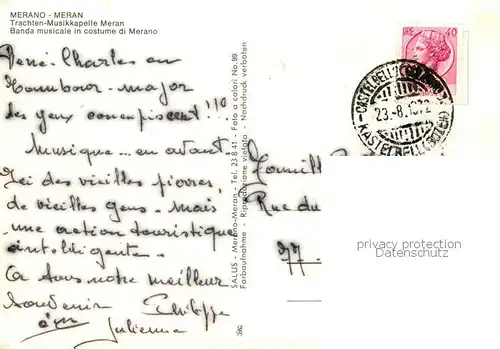 MERANO - MERAN
Trachten-Musikkapelle Meran
Banda musicale in costume di Merano
René-Charles en
Tambour-major
des yeux
!!!
Musique... en avant.
Ici des vieilles pierres,
de vieilles gens - mais
une action touristique
intelligente.
A tous notre meilleur
Souvenir
Philippe
Julienne
SALUS - Merano-Meran - Tel. 23841 - Foto a colori No. 99
Farbaufnahme - Riproduzione vietata - Nachdruck verboten
LIRE 40
23.-8.
KASTELBELL
Famille
Rue du
77
privacy protection
Datenschutz